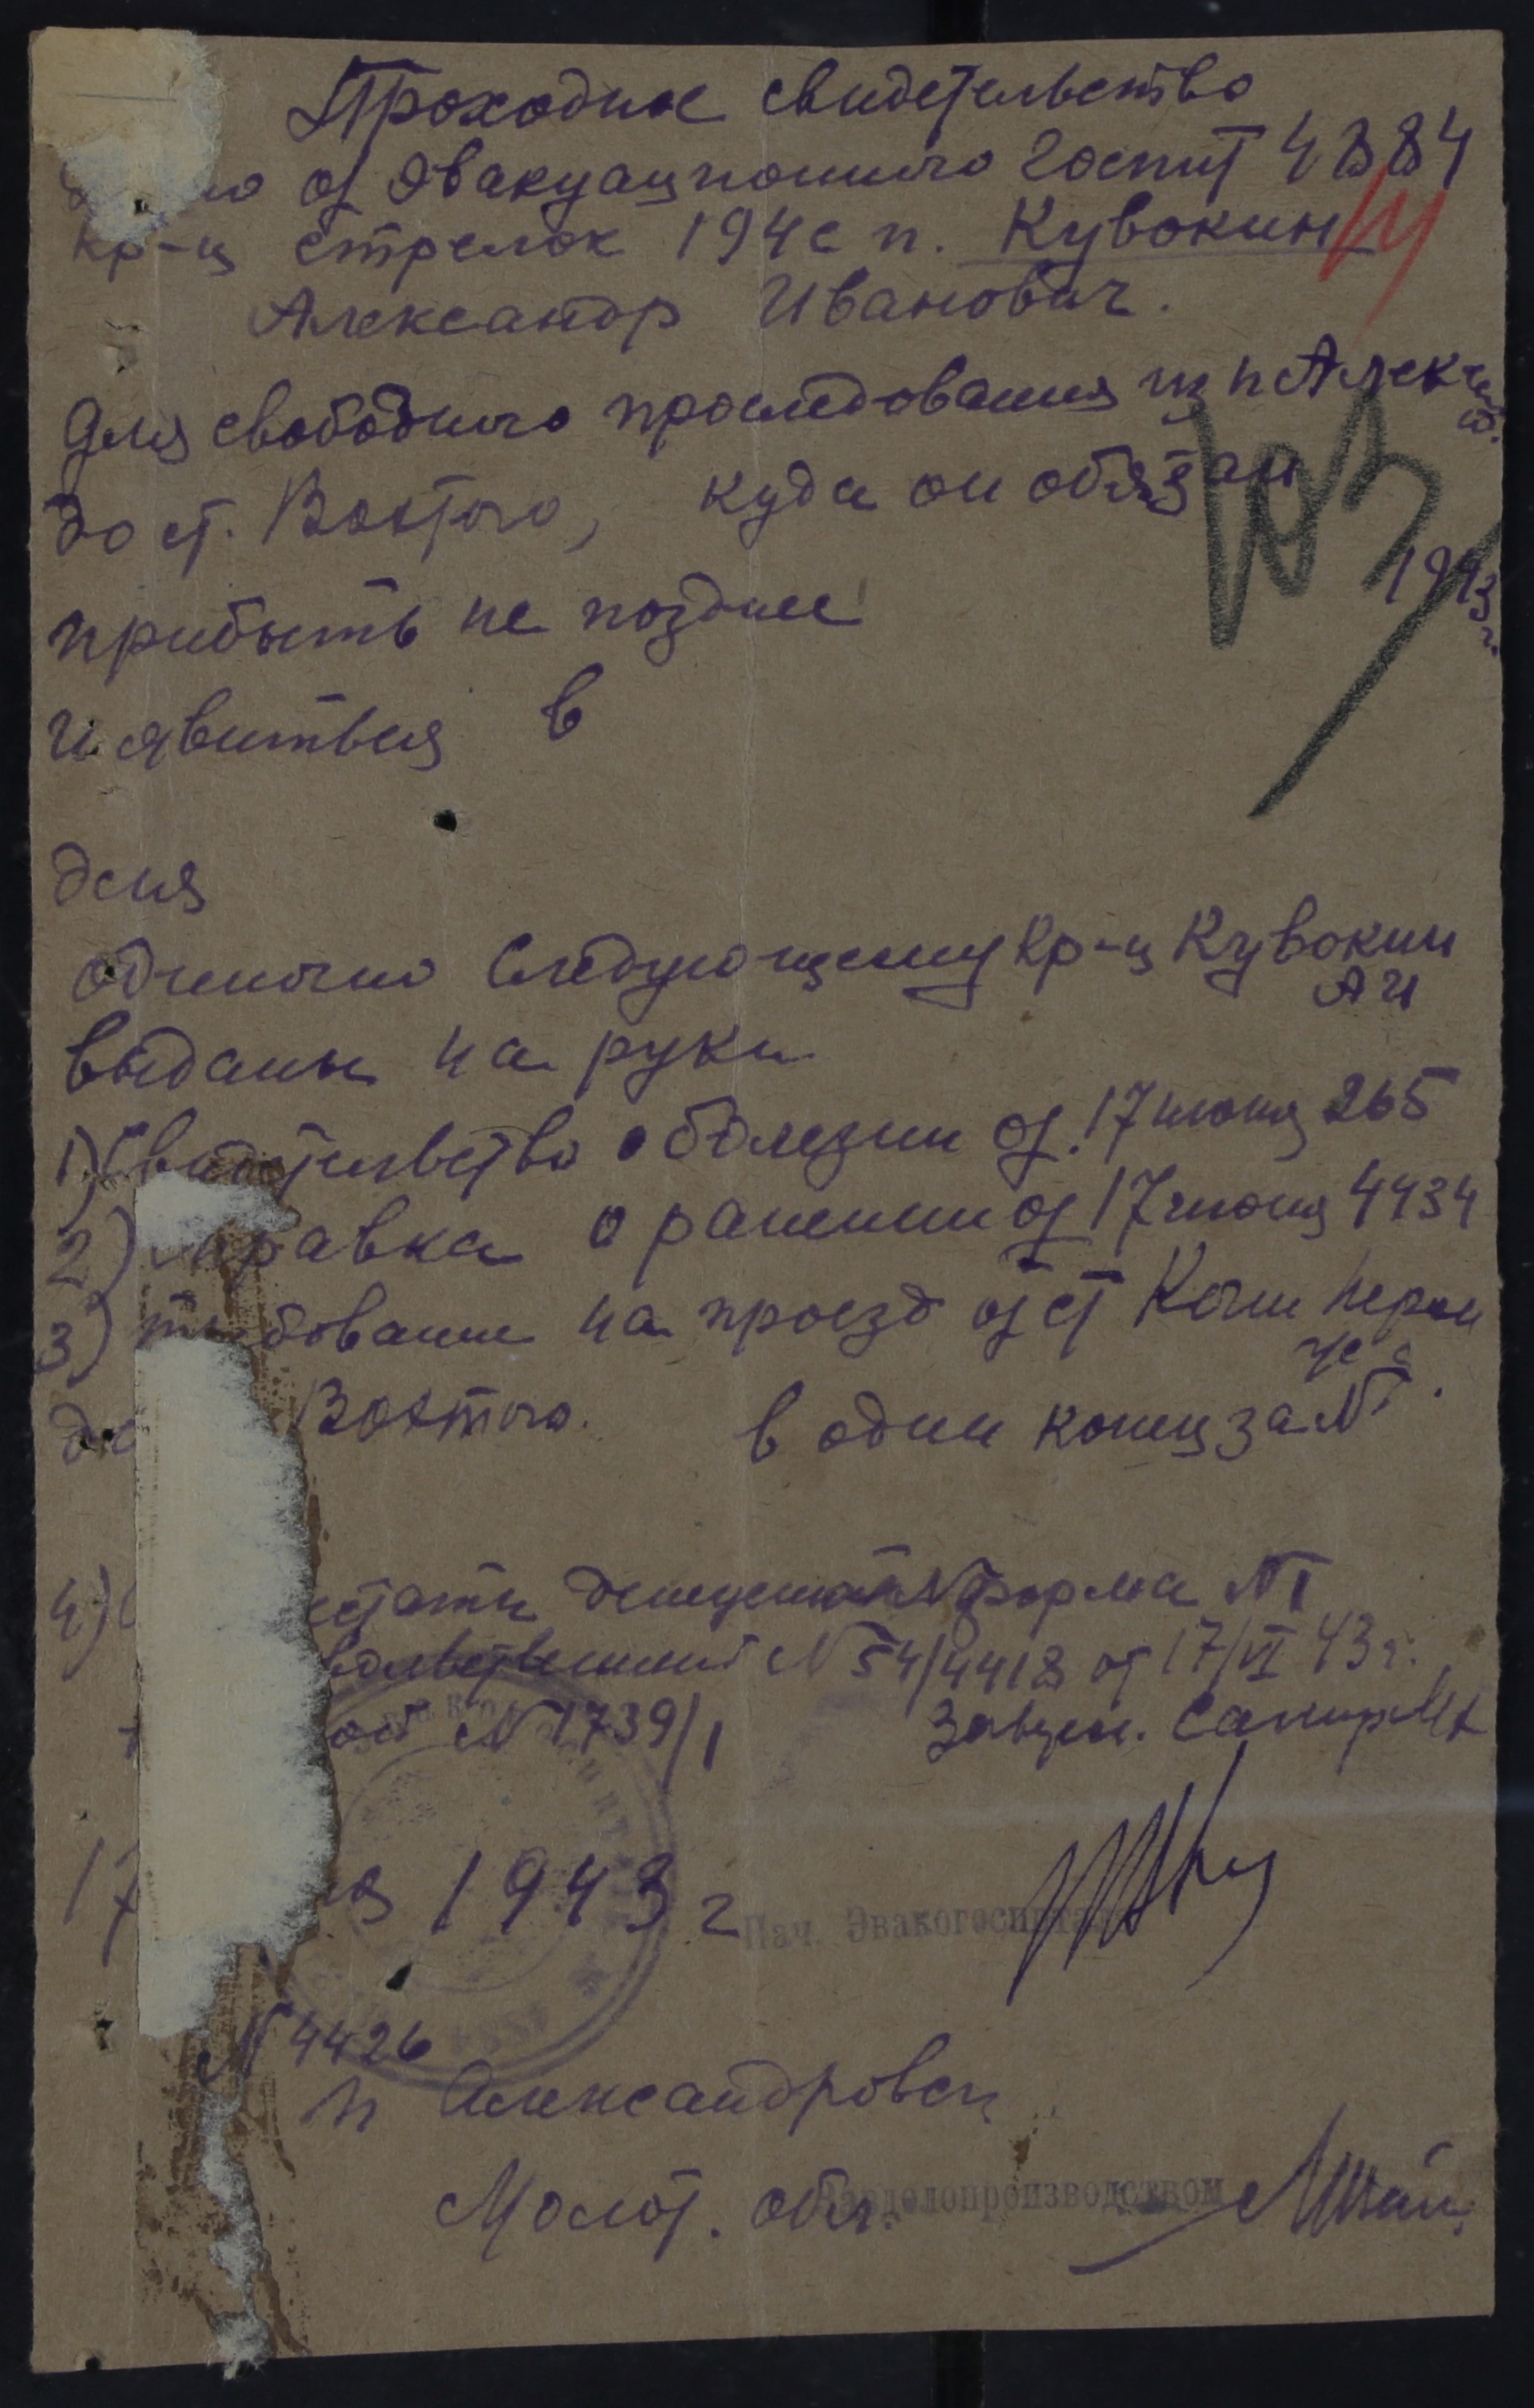 Проходное свидетельство
но от Эвакуационного Госпит 4884
кр-ц стрелок 194 с п. Кувокин
Александр Иванович.
Для свободного проследования из п Алекс
до ст. Вохтога, куда он обязан
прибыть не позднее 1943 г.
и явиться в
103
дня
одиночно следующему Кр-ц Кувокин
А И
выданы на руки
1) Свидетельство о болезни от 17 июня 265
2) справка о ранении от 17 июня 4434
3) требование на проезд от ст Копи
до Вохтога. в один конец за №
4) форма №1
№ 54/4418 от 17/VI 43 г.
№ 1739/1
17 я 1943 г
Нач. Эвакогоспиталя
№ 4426
п Александровск
Молот. обл.
Завделопроизводством